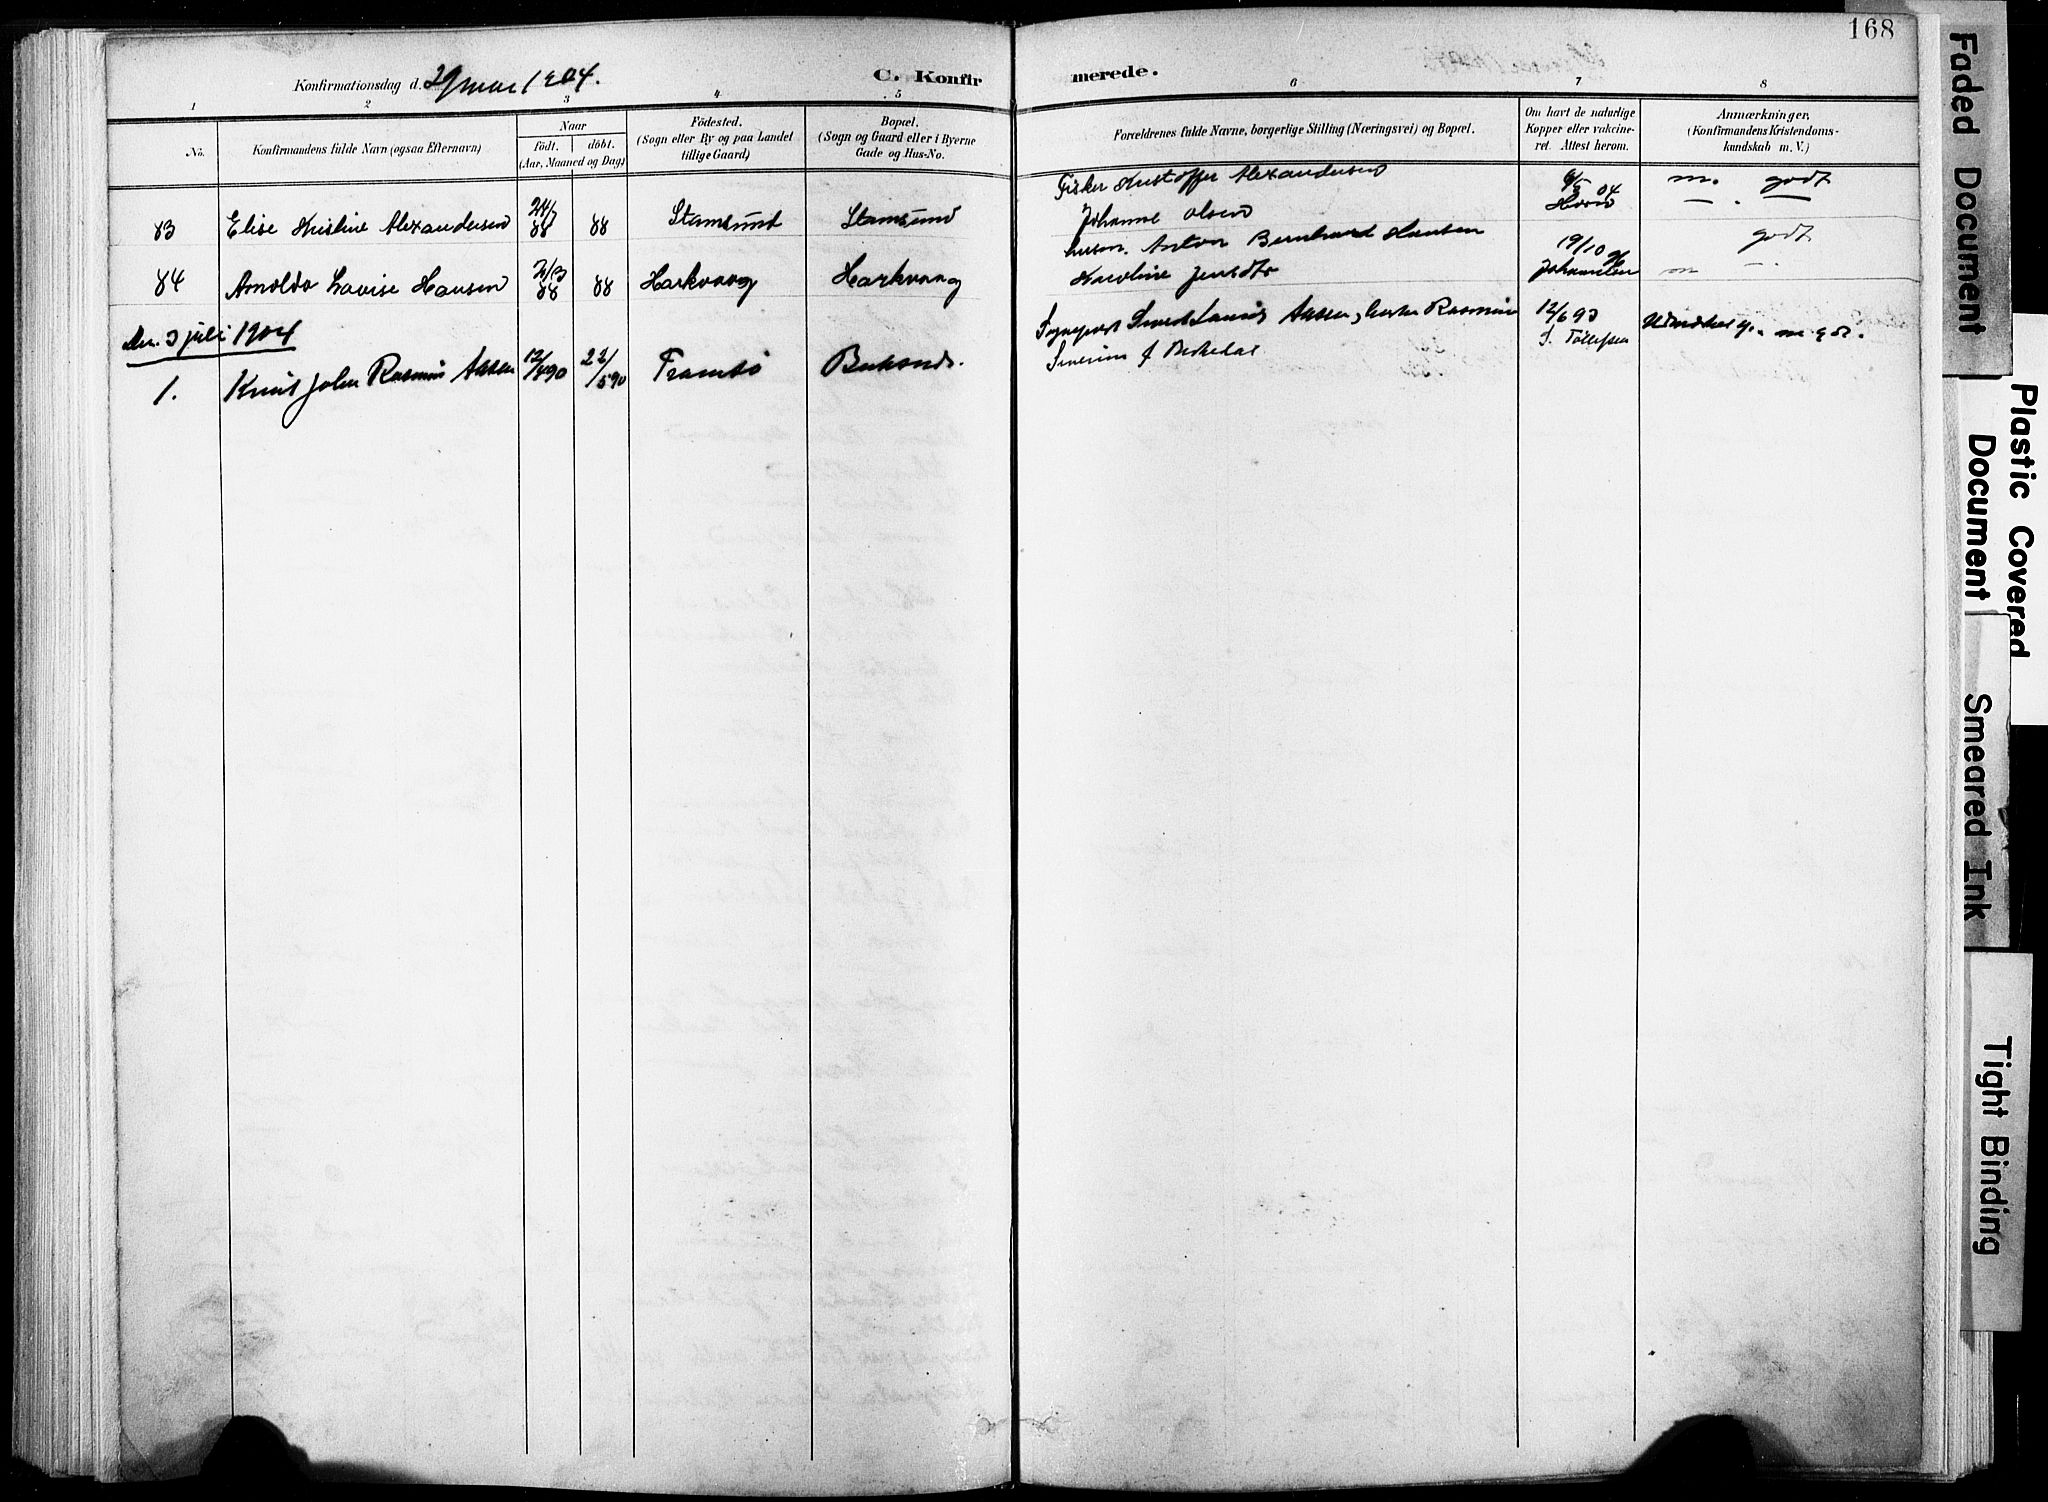 168
Konfirmationsdag d. 29 mai 1904.
C. Konfirmerede.
1 2 3 4 5 6 7 8
No.
Konfirmandens fulde Navn (ogsaa Efternavn)
Naar
födt. döbt.
(Aar, Maaned og Dag)
Födested.
(Sogn eller By og paa Landet
tillige Gaard)
Bopæl.
(Sogn og Gaard eller i Byerne
Gade og Hus-No.
Forældrenes fulde Navne, borgerlige Stilling (Næringsvei) og Bopæl.
Om havt de naturlige
Kopper eller vakcine-
ret. Attest herom.
Anmærkninger.
(Konfirmandens Kristendoms-
kundskab m. V.)
83 Elise Kristine Alexandersen 24/7 88 88 Stamsund Stamsund
Fisker Kristoffer Alexandersen
Johanne Olsen
04
m. godt
84 Arnolda Lovise Hansen 2/3 88 88 Harkvaag Harkvaag
Anton Bernhard Hansen
Karoline Jensdtr
19/10
Johannesen
m godt
Den 3 juli 1904
1. Knut John Rasmus Aassen 12/4 90 22/5 90 Tromsö Buksnes.
Sogneprest Aassen, Rasmine
Severine
12/6 93
S. Tollefsen
Udmærket g. m g d.
Faded Document
Plastic Covered
Document
Smeared Ink
Tight Binding